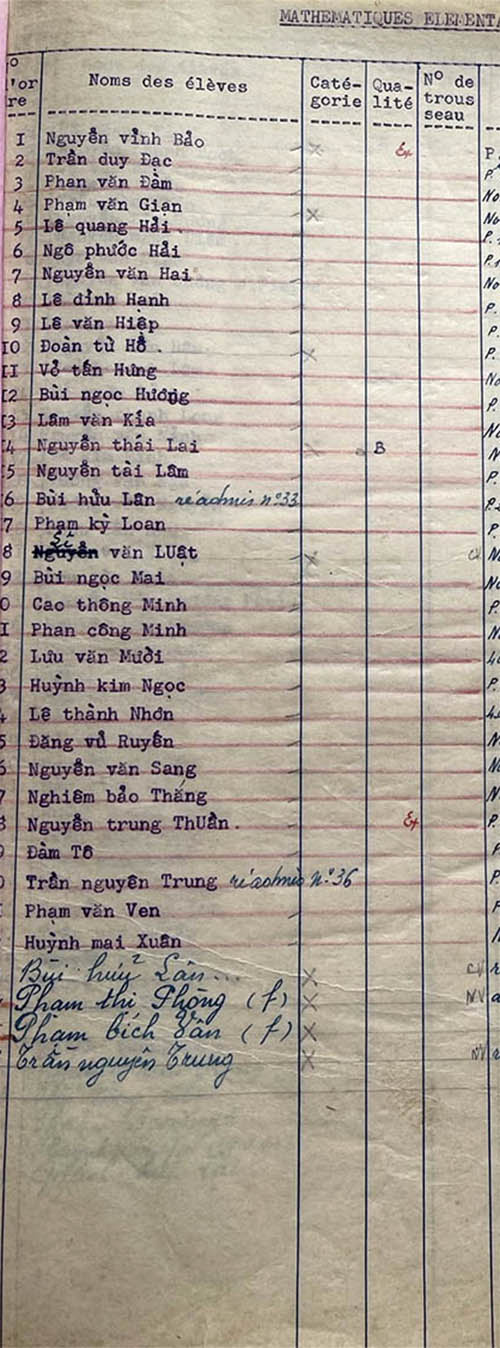 MATHEMATIQUES ELEMENTA
Noms des élèves
Caté-
gorie
Qua-
lité
N° de
trous
seau
I Nguyễn vĩnh Bảo Ex P.
2 Trần duy Đạc P.
3 Phan văn Đàm No
4 Phạm văn Gian No
5 Lê quang Hải. P.
6 Ngô phước Hải P.
7 Nguyễn văn Hai No
8 Lê đỉnh Hanh P.
9 Lê văn Hiệp P.
IO Đoàn tử Hổ. P.
II Vỏ tấn Hưng No
I2 Bùi ngọc Hương P.
I3 Lâm văn Kía No
I4 Nguyễn thái Lai B N
I5 Nguyễn tài Lâm P.
6 Bùi hửu Lân réadmis n°33 P.
7 Phạm kỳ Loan P.
8 Nguyễn văn LUật No
9 Bùi ngọc Mai No
0 Cao thông Minh P.
I Phan công Minh No
2 Lưu văn Mười
3 Huỳnh kim Ngọc P.
Lê thành Nhơn
5 Đăng vủ Ruyến N
6 Nguyễn văn Sang No
7 Nghiêm bảo Thắng N
8 Nguyễn trung ThUần. Ex P.
Đàm Tô P
Trần nguyên Trung réadmis n°36 P.
Phạm văn Ven P
Huỳnh mai Xuân
Bùi hửu Lân... CV
Pham thi Phong (f) NV
Pham bích Vân (f)
Trần nguyên Trung NV